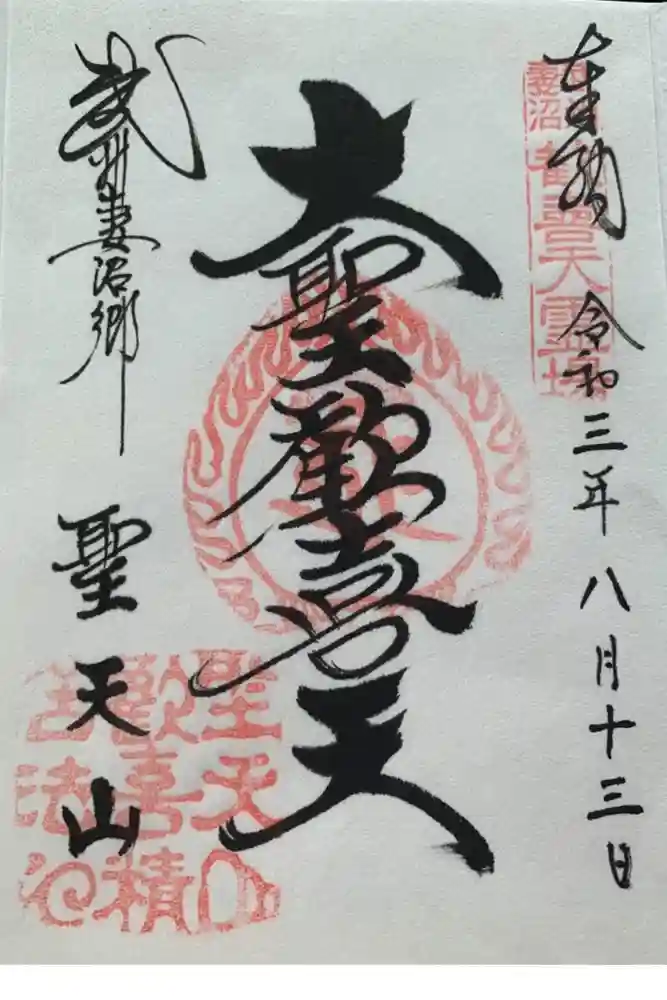 奉拝 令和三年八月十三日
妻沼 歓喜天霊場
大聖歓喜天
武州妻沼郷
聖天山
聖天山
歓喜精